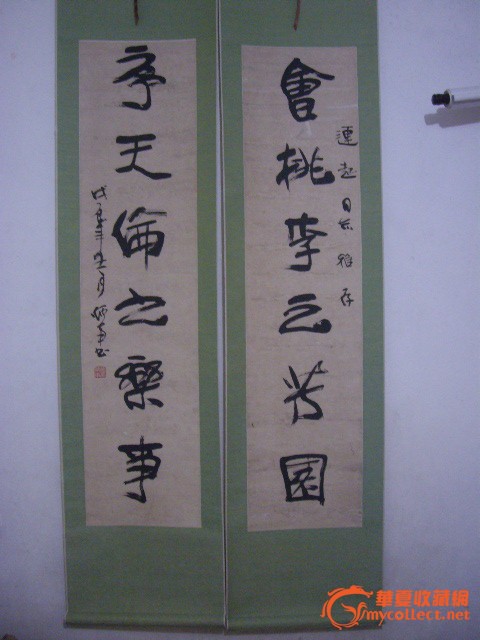 會桃李之芳園
連起同志雅存
序天倫之樂事
華夏收藏網
mycollect.net